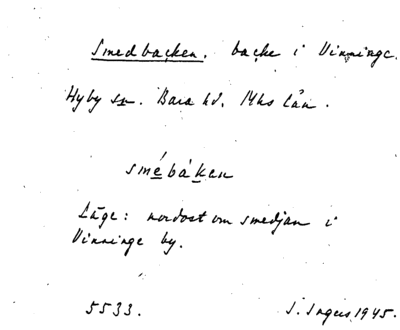 Smedbacken. backe i Vinninge.
Hyby sn. Bara hd. Mhs län.
smébákan
Läge: nordost om smedjan i
Vinninge by.
5533. I. Ingers 1945.